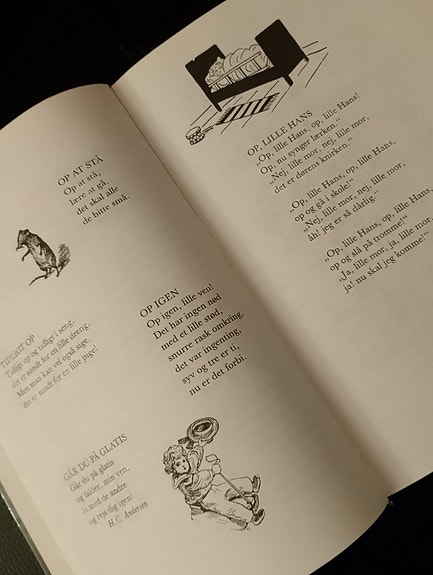 OP AT STÅ
Op at stå,
lære at gå,
det skal alle
de bitte små.
TIDLIGT OP
Tidlig op og tidligt i seng,
det er sundt for en lille dreng.
Men man kan vel også sige,
det er sundt for en lille pige!
OP IGEN
Op igen, lille ven!
Det har ingen nød
med et lille stød,
snurre rask omkring,
det var ingenting,
syv og tre er ti,
nu er det forbi.
GÅR DU PÅ GLATIS
Går du på glatis
og falder, min ven,
le med de andre
og rejs dig igen!
H. C. Andersen
OP, LILLE HANS
„Op, lille Hans, op, lille Hans!
Op, nu synger lærken.“
„Nej, lille mor, nej, lille mor,
det er dørens knirken.“
„Op, lille Hans, op, lille Hans,
op og gå i skole!“
„Nej, lille mor, nej, lille mor,
åh! jeg er så dårlig.“
„Op, lille Hans, op, lille Hans,
op og slå på tromme!“
„Ja, lille mor, ja, lille mor,
ja! nu skal jeg komme!“